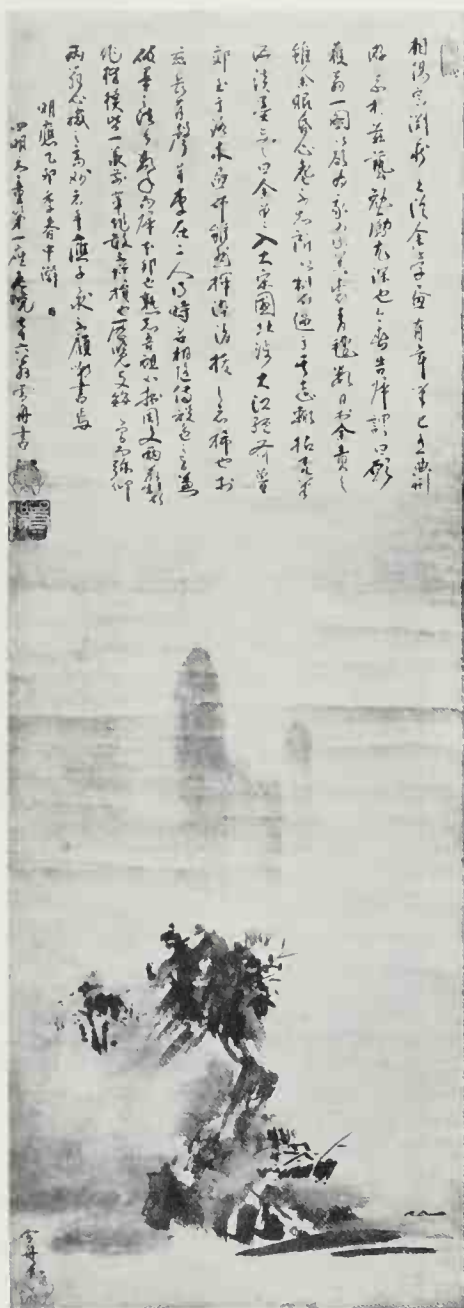 相陽宗淵蔵主従余学画有年筆已有典刑
游意於茲藝勉励尤深也今春告帰謂曰願
獲翁一図以為我家箕裘青氈数日於余責之
雖余眼昏心耄不知所以製逼于其志輙拈禿筆
洒淡墨与之曰余曽入大宋国北渉大江経斉魯
郊至于洛求画師雖然揮染清抜之者稀也於
茲長有声并李在二人得時名相随伝設色之旨兼
破墨之法兮数年而帰本邦也熟知吾祖如拙周文両翁製
作楷模皆一承前輩作敢不増損也歴覧支倭之間而弥仰
両翁心識之高妙者乎応子之求不顧嘲書焉
明応乙卯季春中澣日
四明天童第一座老境七十六翁雪舟書
雪舟